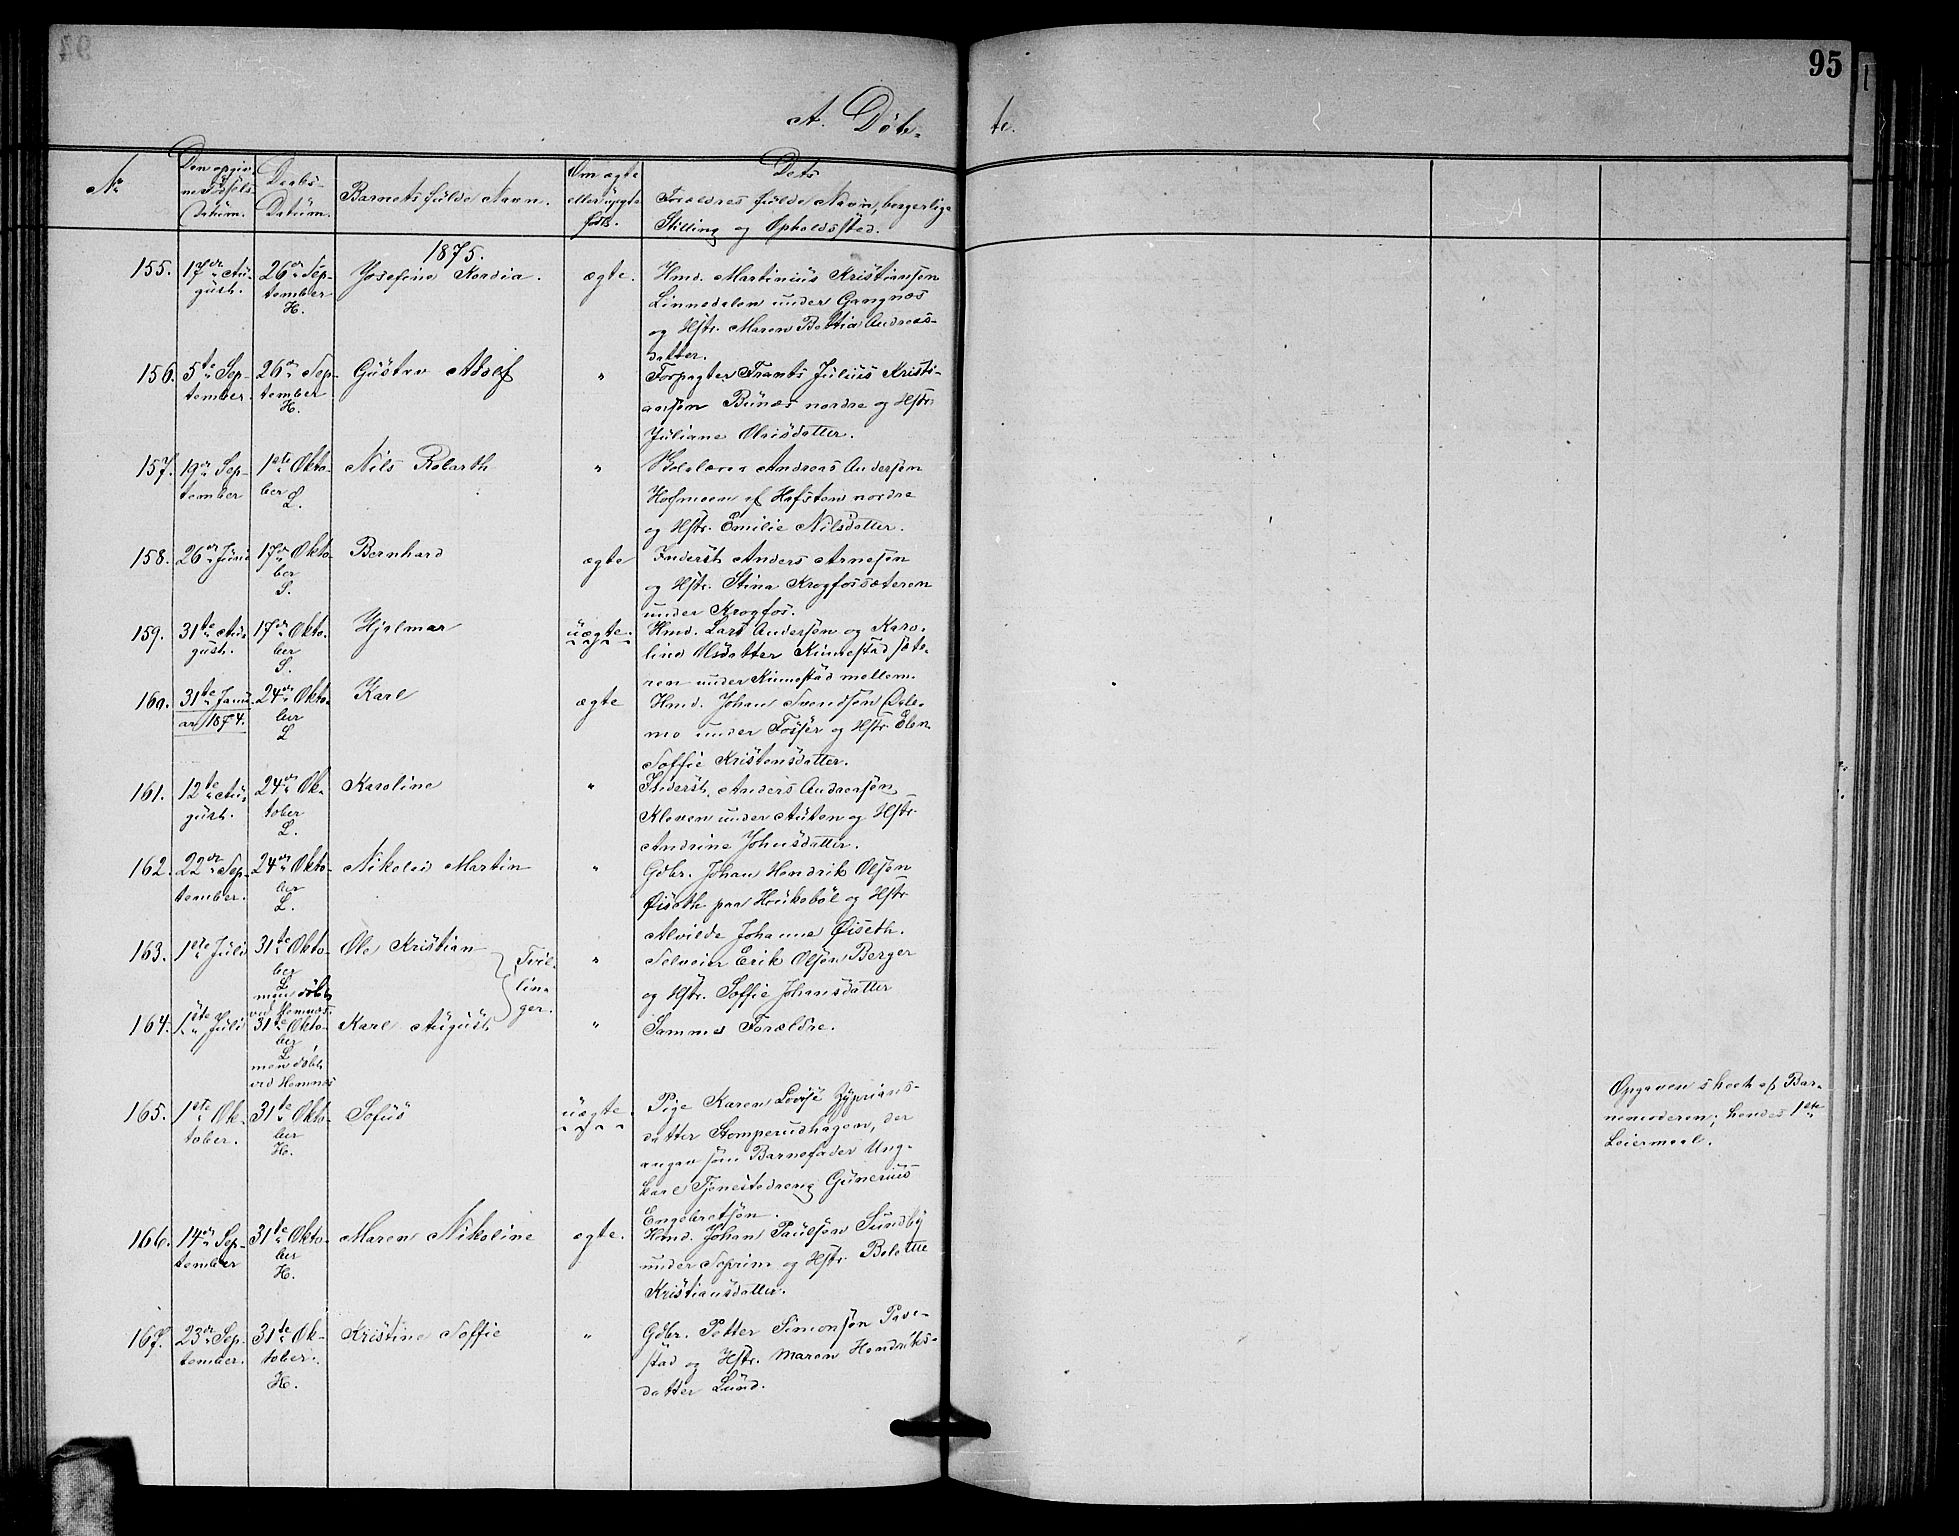 95
A. Døb-
te.
No
Den opgiv
ne Fødsels
Datum.
Daabs-
Datum.
Barnets fulde Navn.
Om ægte
eller uægte
født.
Dets
Forældres fulde Navn, borgerlige
Stilling og Opholdssted.
1875.
155.
17de Au-
gust.
26de Sep-
tember
H.
Josefine
ægte.
Hmd. Martinius Kristiansen
Linnedalen under Gangnæs
og Hstr. Maren Andreas-
datter.
156.
5te Sep-
tember.
26de Sep-
tember
H.
Gustav Adolf
"
Forpagter Frants Julius Kristi-
ansen Bunæs nordre og Hstr.
Juliane Olsisdatter.
157.
19de Sep-
tember
1ste Okto-
ber
L.
Nils
"
Andreas Andersen
af Hafsten nordre
og Hstr. Emilie Nilsdatter.
158.
26de Juni
17de Okto-
ber
S.
Bernhard
ægte
Inderst Anders Arnesøn
og Hstr. Stina Krogfossæteren
under Krogfos.
159.
31te Au-
gust.
17de Okto-
ber
S.
Hjalmar
uægte.
Hmd. Lars Andersen og Karo-
line Olsdatter Kinnestadsæte-
ren under Kinnestad mellem.
160.
31te Janu-
ar 1874.
24de Okto-
ber
L
Karl
ægte
Hmd. Johan Svendsen
mo under Fosser og Hstr. Elen
Soffie Kristensdatter.
161.
12te Au-
gust.
24de Ok-
tober
L.
Karoline
"
Inderst. Anders Andersen
Kleven under Auten og Hstr
Andrine Johnsdatter.
162.
22de Sep-
tember.
24de Okto-
ber
L.
Nikolai Martin
"
Gdbr. Johan Hendrik Olsen
Øiseth paa Houkebøl og Hstr
Alvilde Johanne Øiseth.
163.
1ste Juli
31te Okto-
ber
L
men døbt
ved Hemnæs.
Ole Kristian
Tvil-
lin-
ger.
"
Selveier Erik Olsen Berger
og Hstr. Soffie Johansdatter
164.
1ste Juli
31te Okto-
ber
L
men døbt
ved Hemnæs
Karl August
"
Samme Forældre.
165.
1ste Ok-
tober.
31te Okto-
ber
H.
Sofus
uægte.
Pige Karen Lovise Zyprians-
datter Stomperudhagen, der
angav som Barnefader Ung-
karl Tjenestedreng Gunerius
Engebretsøn.
Opgaven skeet af Bar-
nemoderen; hendes 1ste
Leiermaal.
166.
14de Sep-
tember
31te Okto-
ber
H.
Maren Nikoline
ægte.
Hmd. Johan Paulsen Sundby
under Soprim og Hstr. Bolette
Kristiansdatter.
167.
23de Sep-
tember.
31te Ok-
tober.
H.
Kristine Soffie
"
Gdbr. Petter Simonsøn Tave-
stad og Hstr. Maren Hendriks-
datter Lund.